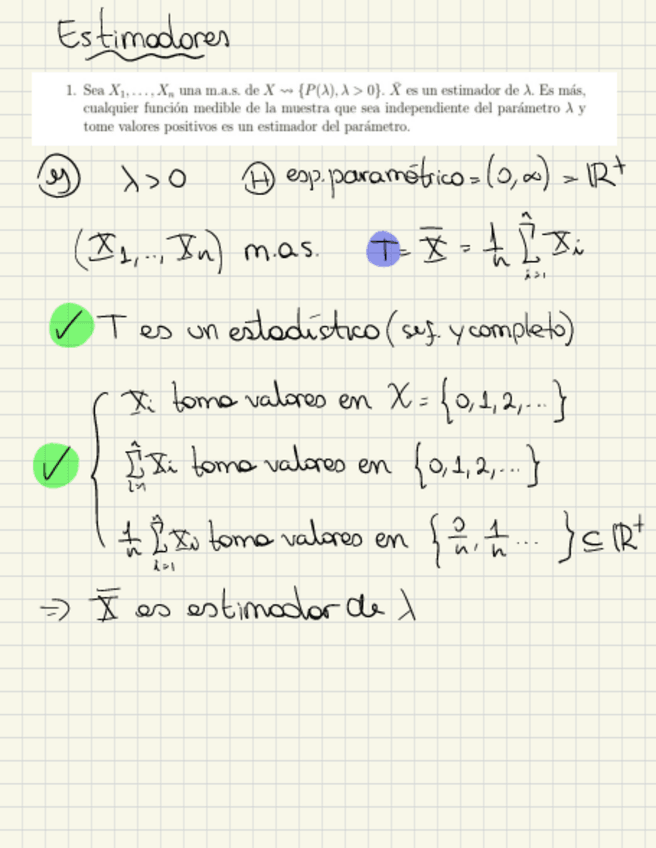 Estimadores
1. Sea X₁, . . . , Xₙ una m.a.s. de X ⇝ {P(λ), λ > 0}. X̄ es un estimador de λ. Es más,
cualquier función medible de la muestra que sea independiente del parámetro λ y
tome valores positivos es un estimador del parámetro.
λ>0 Ⓗ esp.paramétrico = (0,∞) = ℝ⁺
(X₁,.., Xₙ) m.a.s. T = X̄ = 1/n ∑ᵢ₌₁ⁿ Xᵢ
✓ T es un estadístico (suf. y completo)
Xᵢ toma valores en X = {0,1,2,...}
✓ ∑ᵢ₌₁ⁿ Xᵢ toma valores en {0,1,2,...}
1/n ∑ᵢ₌₁ⁿ Xᵢ toma valores en {0/n, 1/n ...} ⊆ ℝ⁺
⇒ X̄ es estimador de λ